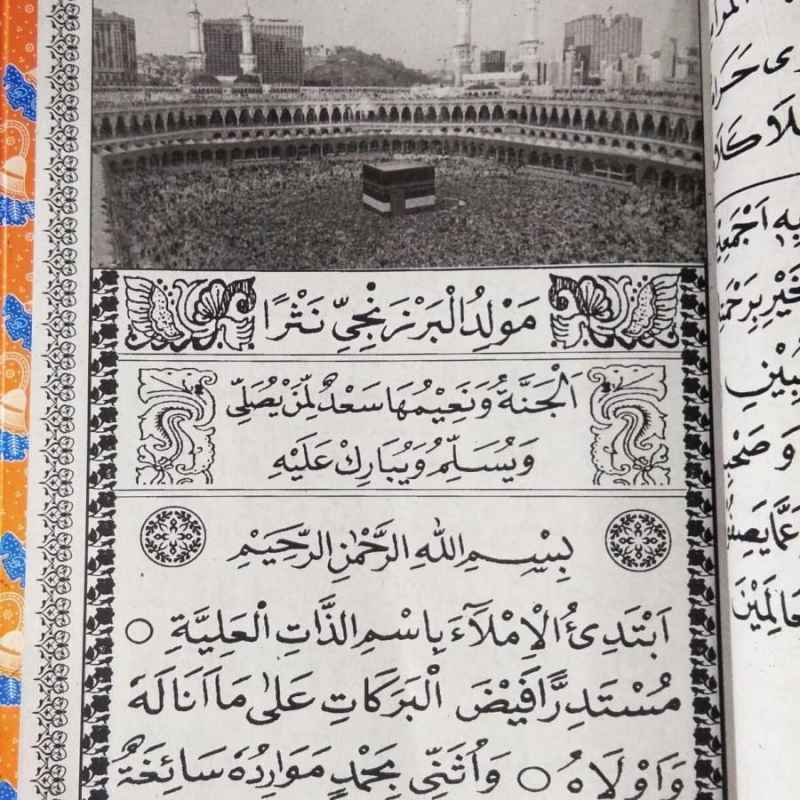 مَوْلِدُ الْبَرْزَنْجِيِّ نَثْرًا
اَلْجَنَّةُ وَنَعِيْمُهَا سَعْدٌ لِمَنْ يُصَلِّى
وَيُسَلِّمُ وَيُبَارِكْ عَلَيْهِ
بِسْمِ اللهِ الرَّحْمٰنِ الرَّحِيْمِ
اَبْتَدِئُ الْاِمْلَآءَ بِاسْمِ الذَّاتِ الْعَلِيَّةِ ○
مُسْتَدِرًّا فَيْضَ الْبَرَكَاتِ عَلٰى مَا اَنَالَهُ
وَاَوْلَاهُ ○ وَاُثَنِّى بِحَمْدٍ مَوَارِدُهُ سَائِغَةٌ